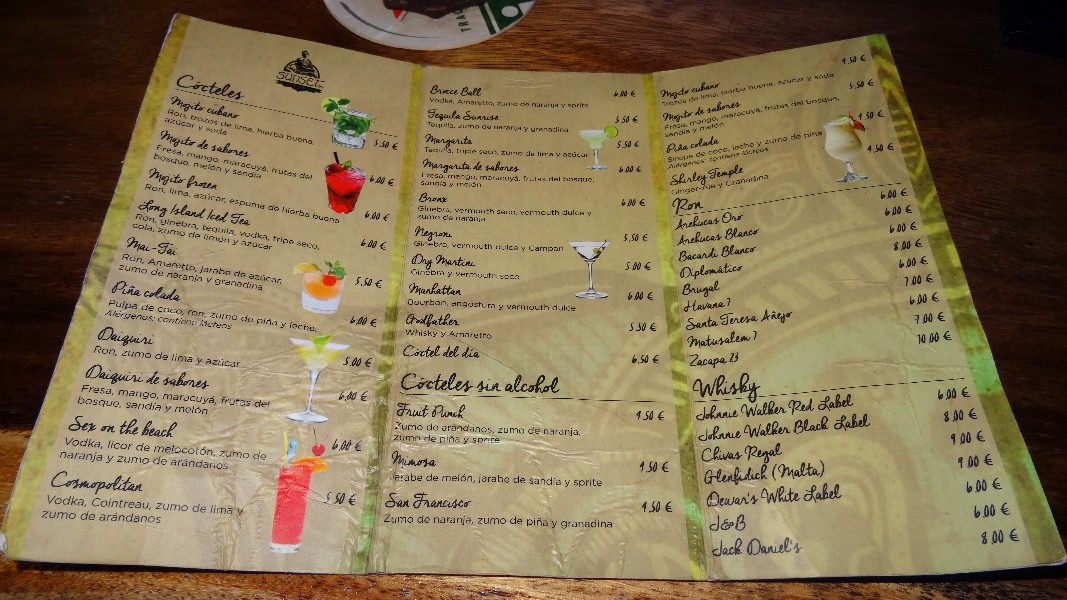 TRAD
sunset
Cócteles
Mojito cubano
Ron, trozos de lima, hierba buena,
azúcar y soda
5.50 €
Mojito de sabores
Fresa, mango, maracuyá, frutas del
bosque, melón y sandía
6.00 €
Mojito frozen
Ron, lima, azúcar, espuma de hierba buena
6.00 €
Long Island Iced Tea
Ron, ginebra, tequila, vodka, triple seco,
cola, zumo de limón y azúcar
6.00 €
Mai-Tai
Ron, Amaretto, jarabe de azúcar,
zumo de naranja y granadina
5.50 €
Piña colada
Pulpa de coco, ron, zumo de piña y leche,
Alérgenos: contiene lácteos
6.00 €
Daiquiri
Ron, zumo de lima y azúcar
5.00 €
Daiquiri de sabores
Fresa, mango, maracuyá, frutas del
bosque, sandía y melón
6.00 €
Sex on the beach
Vodka, licor de melocotón, zumo de
naranja y zumo de arándanos
6.00 €
Cosmopolitan
Vodka, Cointreau, zumo de lima y
zumo de arándanos
5.50 €
Bruce Bull
Vodka, Amaretto, zumo de naranja y sprite
6.00 €
Tequila Sunrise
Tequila, zumo de naranja y granadina
5.50 €
Margarita
Tequila, triple seco, zumo de lima y azúcar
5.50 €
Margarita de sabores
Fresa, mango, maracuyá, frutas del bosque,
sandía y melón
6.00 €
Bronx
Ginebra, vermouth seco, vermouth dulce y
zumo de naranja
6.00 €
Negroni
Ginebra, vermouth dulce y Campari
5.50 €
Dry Martini
Ginebra y vermouth seco
5.00 €
Manhattan
Bourbon, angostura y vermouth dulce
6.00 €
Godfather
Whisky y Amaretto
5.50 €
Cóctel del día
6.50 €
Cócteles sin alcohol
Fruit Punch
Zumo de arándanos, zumo de naranja,
zumo de piña y sprite
4.50 €
Mimosa
Jarabe de melón, jarabe de sandía y sprite
4.50 €
San Francisco
Zumo de naranja, zumo de piña y granadina
4.50 €
Mojito cubano
Trozos de lima, hierba buena, azúcar y soda
4.50 €
Mojito de sabores
Fresa, mango, maracuyá, frutas del bosque,
sandía y melón
5.50 €
Piña colada
Sirope de coco, leche y zumo de piña
Alérgenos: contiene lácteos
4.50 €
Shirley Temple
Ginger-Ale y Granadina
4.50 €
Ron
Arehucas Oro 6.00 €
Arehucas Blanco 6.00 €
Bacardi Blanco 6.00 €
Diplomático 8.00 €
Brugal 6.00 €
Havana 7 7.00 €
Santa Teresa Añejo 6.00 €
Matusalem 7 7.00 €
Zacapa 23 10.00 €
Whisky
Johnnie Walker Red Label 6.00 €
Johnnie Walker Black Label 8.00 €
Chivas Regal 9.00 €
Glenfidich (Malta) 9.00 €
Dewar's White Label 6.00 €
J&B 6.00 €
Jack Daniel's 8.00 €